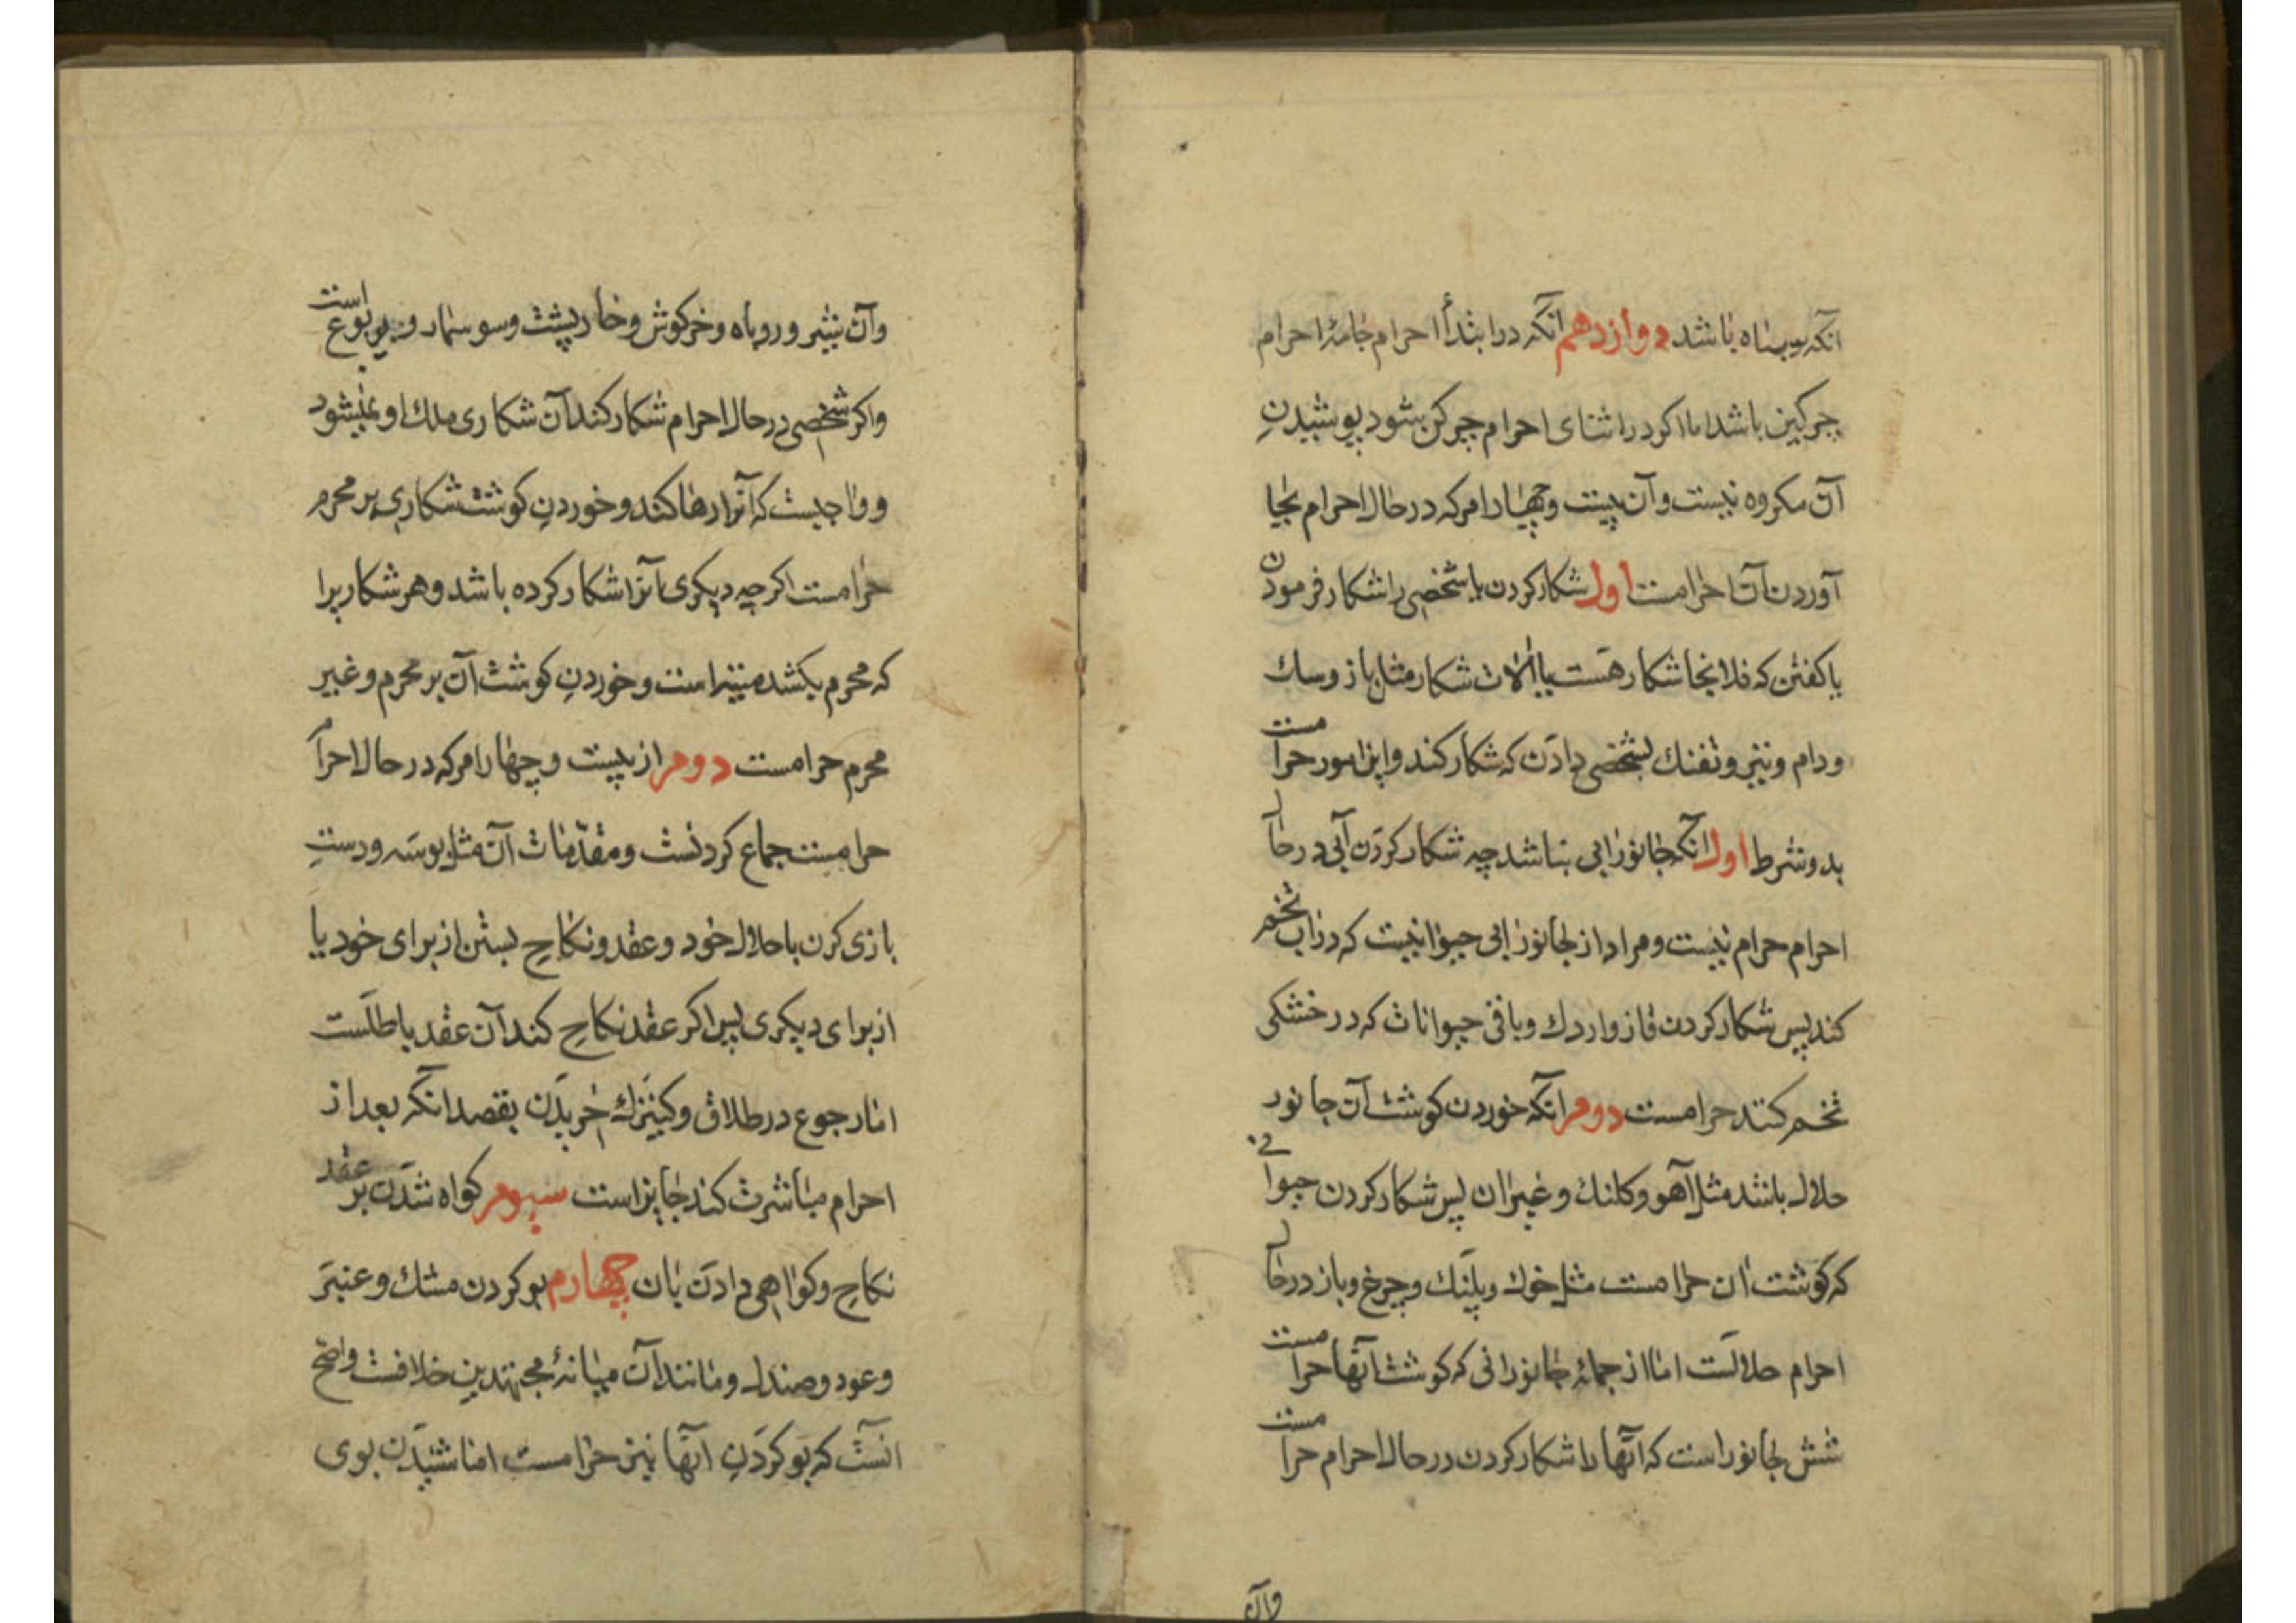 آنکه سیاه باشد دوازدهم آنکه در ابتدأ احرام جامۀ احرام
چرکین باشد اما اکر در اثنای احرام چرکن شود پوشیدنِ
آن مکروه نیست وآن بیست وچهار امر که در حال احرام بجا
آوردن آن حرامست اول شکار کردن یا شخصی را شکار فرمودن
یا کفتن که فلانجا شکار هَست یا آلات شکار مثل باز وسك
ودام وتیر وتفنك بشخصی دادَن که شکار کند واین امور حرامست
بدو شرط اول آنکه جانور آبی نباشد چه شکار کردَن آبی در حال
احرام حرام نیست ومراد از جانور آبی حیوانیست که در آب تخم
کند پس شکار کردن قاز واردك وباقی حیوانات که در خشکی
تخم کنند حرامست دوم آنکه خوردن کوشت آن جانور
حلال باشد مثل آهو وکلنك وغیر آن پس شکار کردن حیوانی
که کوشت ان حرامست مثل خوك وپلنك وچرغ وباز در حال
احرام حلالَست اما از جملۀ جانورانی که کوشت آنها حرامست
شش جانور است که آنها را شکار کردن در حال احرام حرامست
وآن
وآن شیر وروباه وخرکوش وخارپشت وسوسمار ویربوع است
واکر شخصی در حال احرام شکار کند آن شکاری ملك او نمیشود
وواجبست که آنرا رها کند وخوردنِ کوشت شکاری بر محرم
حرامست اکرچه دیکری آنرا شکار کرده باشد وهر شکاریرا
که محرم بکشد میته است وخوردنِ کوشت آن بر محرم وغیر
محرم حرامست دوم از بیست وچهار امر که در حال احرام
حرامست جماع کردنست ومقدّمات آن مثل بوسَه ودست
بازی کرن با حلال خود وعقد ونکاح بستن از برای خود یا
از برای دیکری پس اکر عقد نکاح کند آن عقد باطلَست
اما رجوع در طلاق وکنیزك خریدَن بقصد آنکه بعد از
احرام مباشرت کند جایز است سیوم کواه شدَن بر عقد
نکاح وکواهی دادَن بان چهارم بو کردن مشك وعنبر
وعود وصندل ومانند آن میانۀ مجتهدین خلافست واصح
آنست که بو کردَنِ آنها نیز حرامست اما شنیدَن بوی